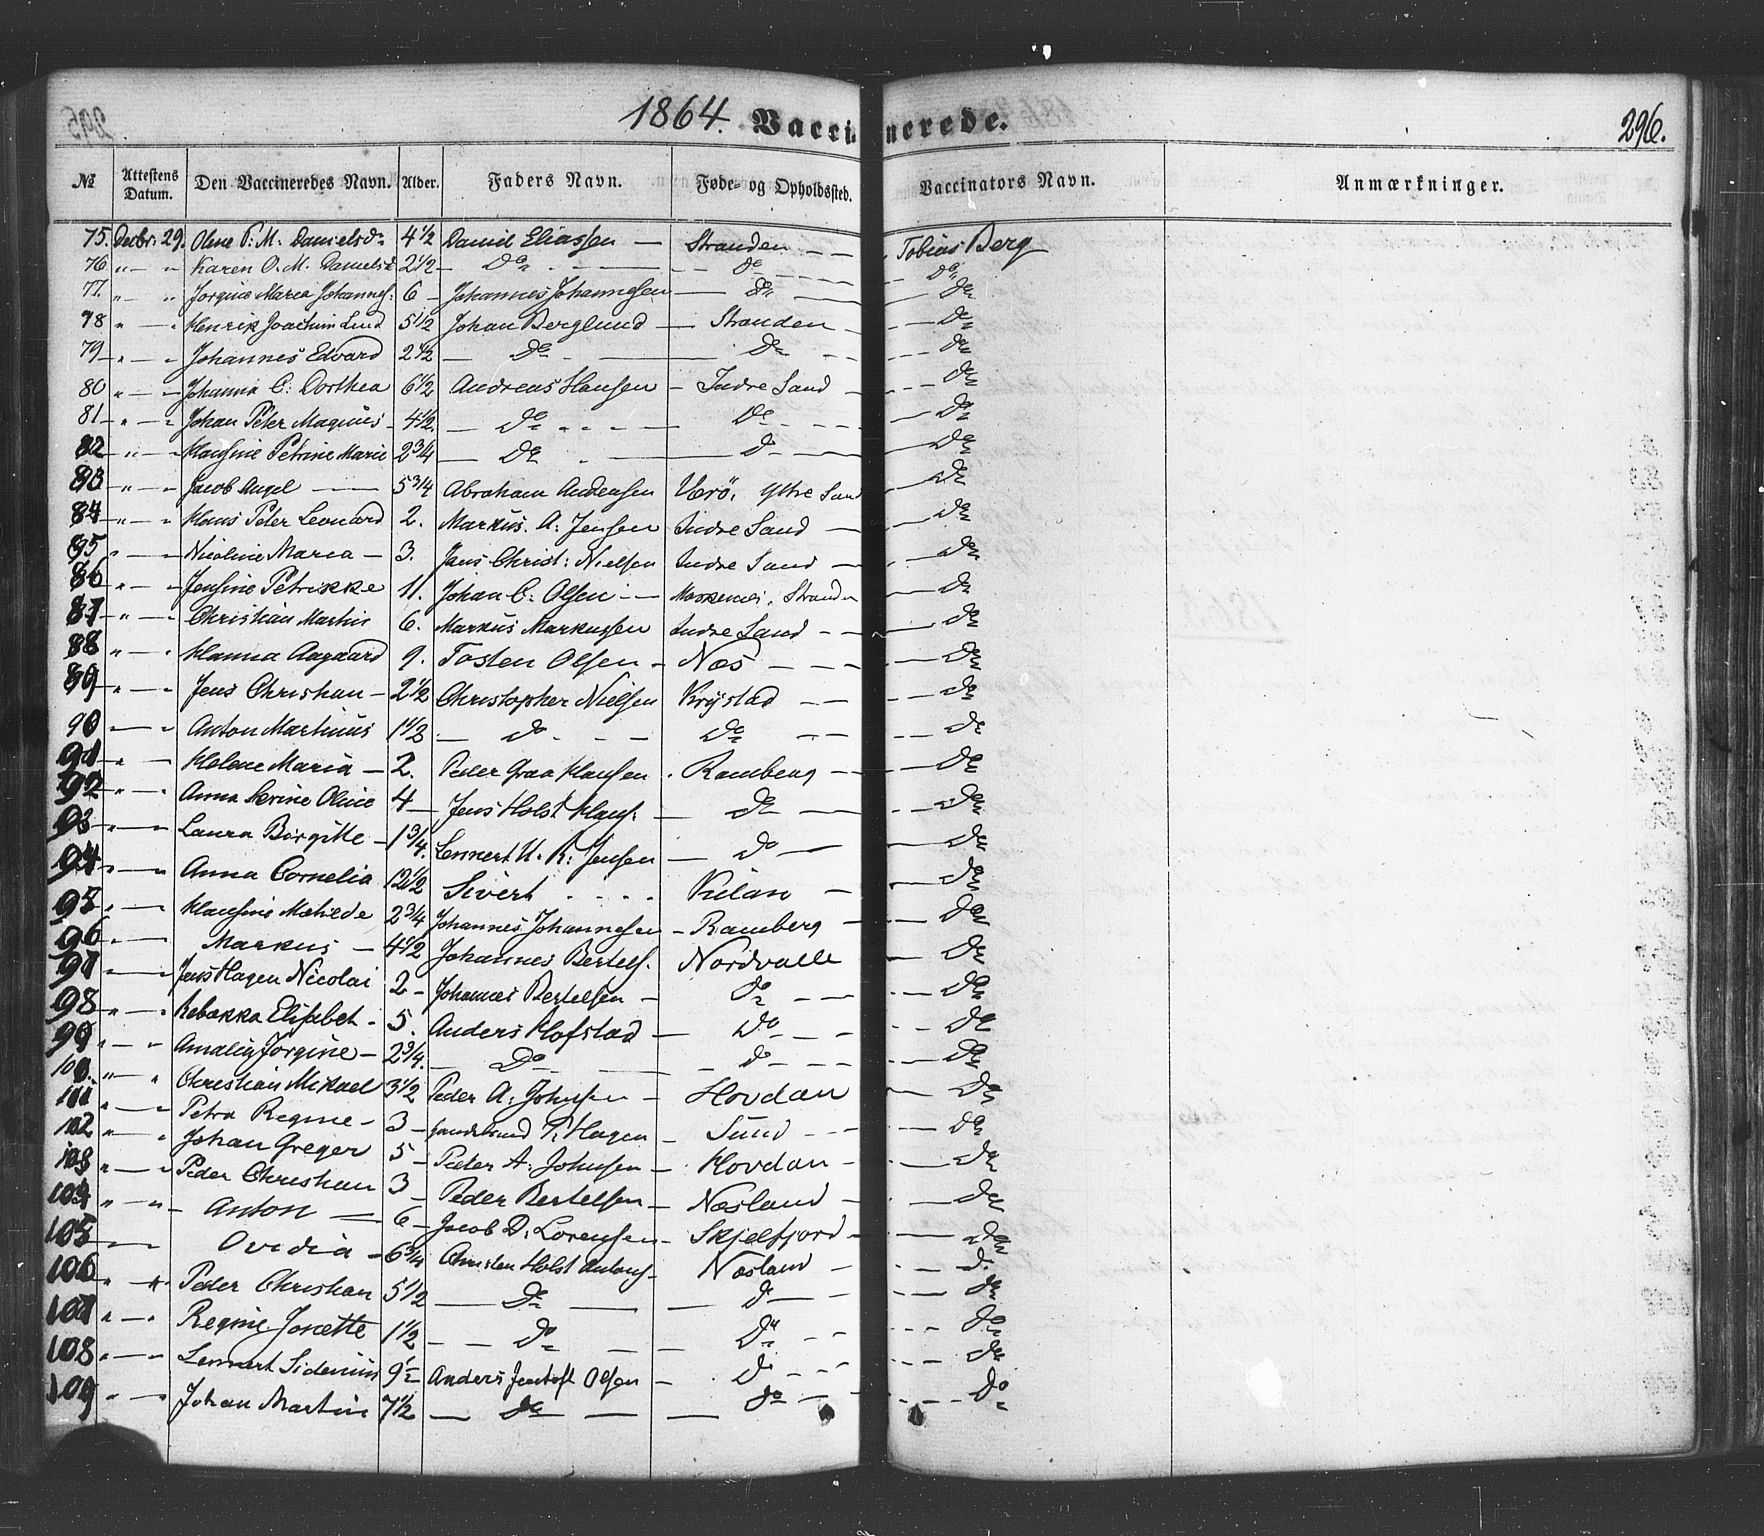 1864. Vaccinerede. 296.
№ Attestens Datum. Den Vaccineredes Navn. Alder. Faders Navn. Føde- og Opholdssted. Vaccinators Navn. Anmærkninger.
75. Decbr: 29. Oline P. M. Danielsdr 4 1/2 Daniel Eliassen — Stranden Tobias Berg
76 " — " Karen O. M. Danielsd 2 1/2 — Do — Do Do
77. " — " Jorgine Marea Johannes: 6 — Johannes Johannesen — Do Do
78 " — " Henrik Joachim Lind 5 1/2 Johan Berglund — Stranden Do
79 " — " Johannes Edvard 2 1/2 — Do — Do Do
80 " — " Johanna C: Dorthea 6 1/2 Andreas Hansen — Indre Sand Do
81 " — " Johan Peter Magnus 4 1/2 — Do — Do Do
82 " — " Hansine Petrine Marie 2 3/4 — Do — Do Do
83 " — " Jacob Angel — 5 3/4 Abraham Andersen Værö, Ytre Sand Do
84 " — " Hans Peter Leonard 2. Markus. A: Jensen Indre Sand — Do
85 " — " Nicoline Marea — 3. Jens Christ: Nielsen Indre Sand — Do
86 " — " Jensine Petrikke 11. Johan C: Olsen — Stranden Do
87 " — " Christian Martin 6. Markus Markussen Indre Sand — Do
88 " — " Hanna Aagaard 9. Tosten Olsen — Næs — Do
89 " — " Jens Christian — 2 1/2 Christopher Nielsen Krystad — Do
90 " — " Anton Martinus 1 1/2 — Do — Do Do
91 " — " Helene Maria — 2. Peder Graa Hansen . Ramberg — Do
92 " — " Anna Serine Oline 4 — Jens Holst Hans: — Do — Do
93 " — " Laura Birgitte — 1 3/4. Lennert U. R: Jensen — Do — Do
94 " — " Anna Cornelia 12 1/2 Sivert Vilan — Do
95 " — " Hansine Mathilde 2 3/4 Johannes Johannesen — Ramberg — Do
96 " — Markus — 4 1/2 Johannes Bertels. Nordvalle Do
97 " — " Jens Hagen Nicolai 2 — Johannes Bertelsen — Do — Do
98 " — " Rebekka Elisabet . 5. Anders Hofstad — Do — Do
99 " — " Amalia Jörgine — 2 3/4. — Do — Do — Do
100. " — " Christian Mikael 3 1/2 Peder A: Johnsen — Hovdan Do
101. " — " Petra Regine — 3 — P: Hagen — Sund — Do
102 " — " Johan Greger 5 — Peter A: Johnsen — Hovdan — Do
103 " — " Peder Christian 3 — Peder Bertelsen — Næsland — Do
104 " — " — Anton — 6 — Jacob D: Lorensen — Skjelfjord — Do
105 " — Ovidia — 6 3/4 Christen Holst Antons — Næsland — Do
106 " — " Peder Christian 5 1/2 — Do — Do — Do
107 " — " Regine Jonette 1 1/2 — Do — Do — Do
108 " — " Lennert Sidenius 9 1/2 Anders Jentoft Olsen — Do — Do
109 " — " Johan Martin 7 1/2 — Do — Do — Do